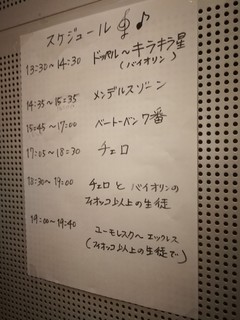 スケジュール
13:30〜14:30 ドッペル〜キラキラ星
(バイオリン)
14:35〜15:35 メンデルスゾーン
15:45〜17:00 ベートーベン7番
17:05〜18:30 チェロ
18:30〜19:00 チェロとバイオリンの
フィオッコ以上の生徒
19:00〜19:40
ユーモレスク〜エックレス
(フィオッコ以上の生徒で)